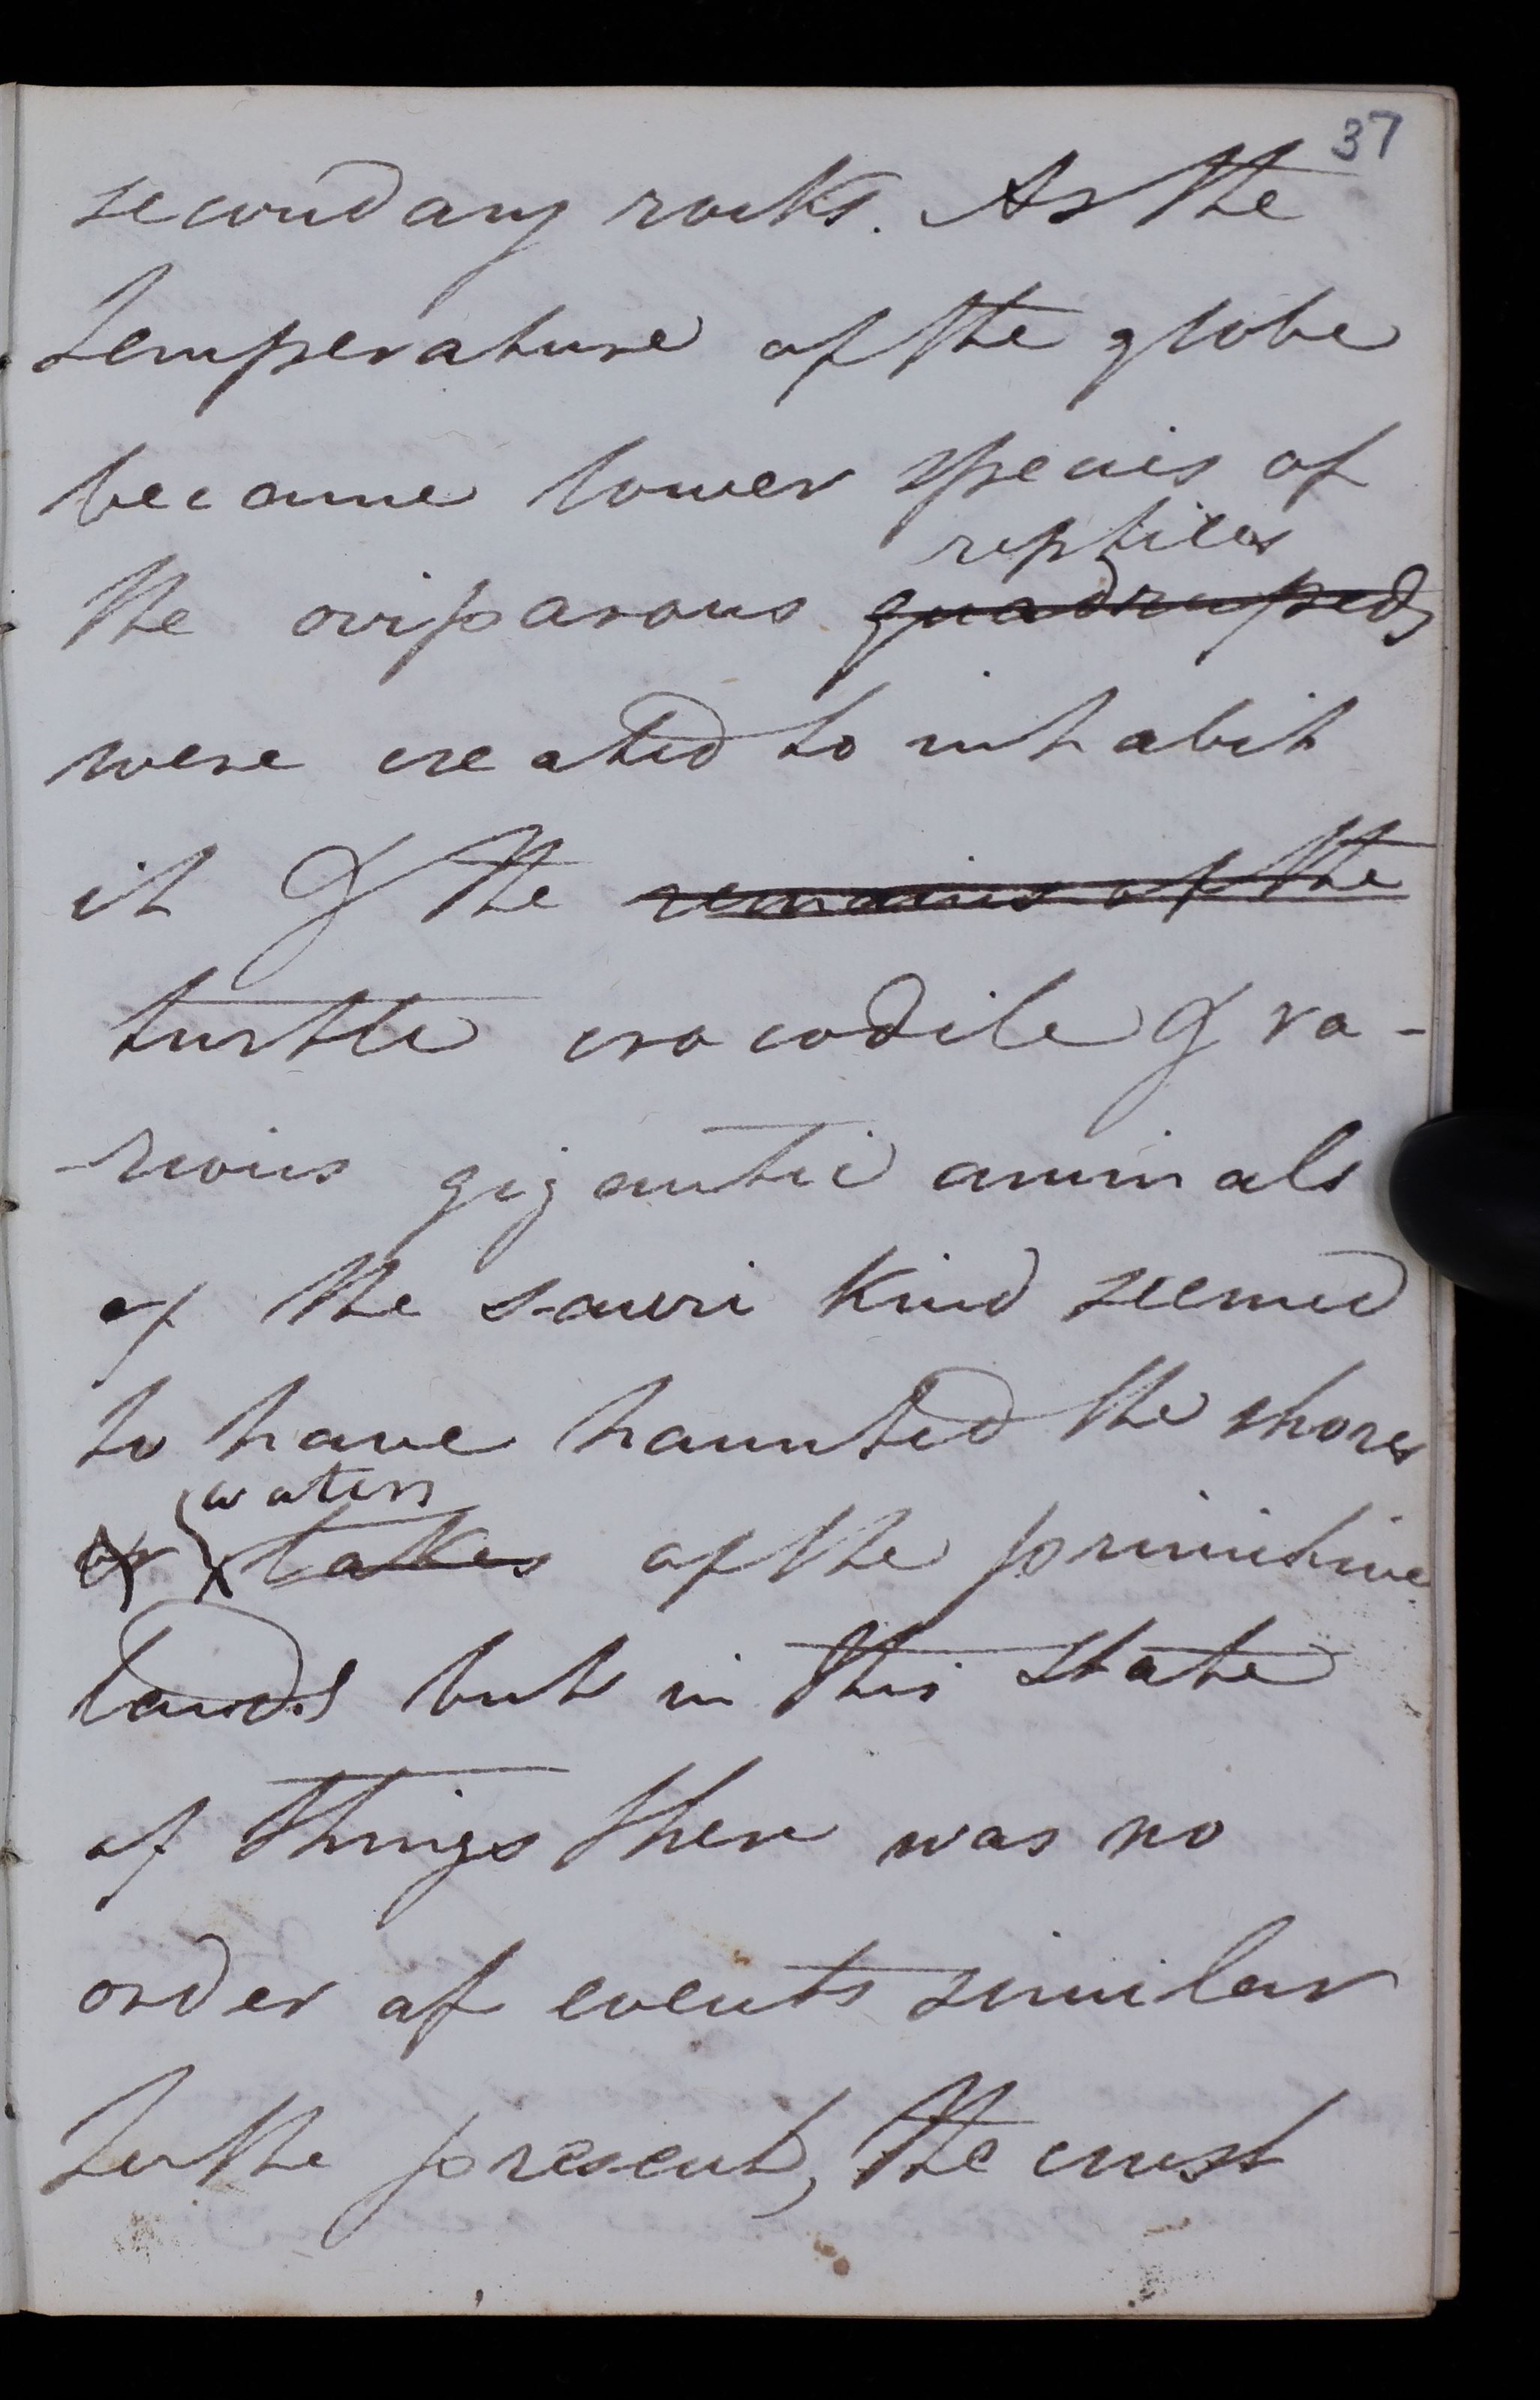 37
secondary rocks. As the
temperature of the globe
became lower species of
reptiles
the oviparous quadrupeds
were created to inhabit
it & the remains of the
turtle crocodile & va-
-rious gigantic animals
of the sauri kind seemed
to have haunted the shores
waters
or lakes of the primitive
lands but in this state
of things there was no
order of events similar
to the present, the crust